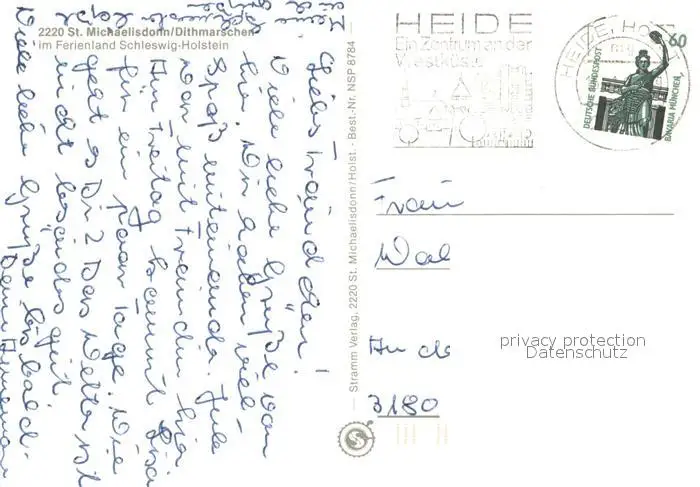 2220 St. Michaelisdonn/Dithmarschen
im Ferienland Schleswig-Holstein
Viele liebe Grüße von
hier. Wir haben viel
Spaß miteinander. Jule
war mit Freundin hier
Am Freitag kommt
für ein paar Tage. Wie
geht es Dir? Das Wetter ist
nicht besonders gut.
Viele liebe Grüße bis bald.
Deine
Stramm Verlag, 2220 St. Michaelisdonn/Holst. - Best.-Nr. NSP 8784
HEIDE
Ein Zentrum an der
Westküste
HEIDE, HOLST
60
DEUTSCHE BUNDESPOST
BAVARIA MÜNCHEN
Frau
Wal
An de
3180
privacy protection
Datenschutz